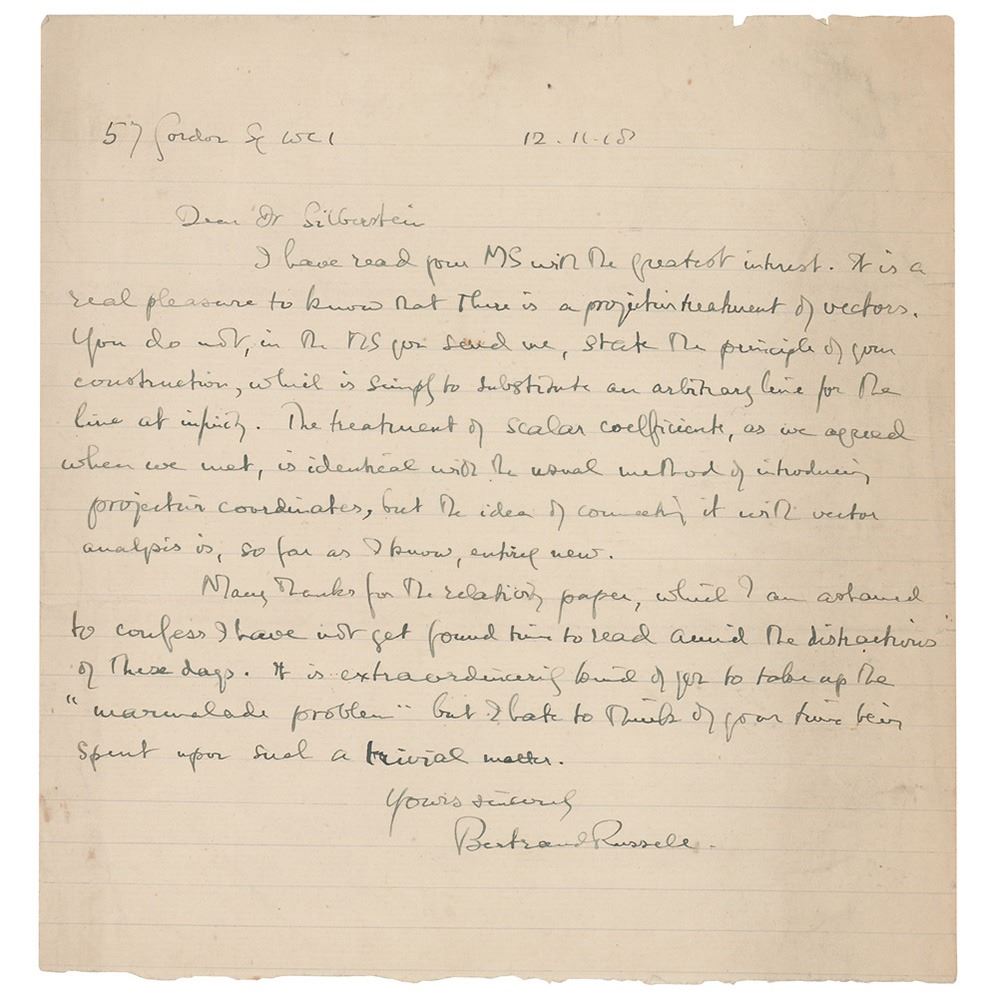 57 Gordon Sq WC1 12.11.18
Dear Dr Silberstein
I have read your MS with the greatest interest. It is a
real pleasure to know that there is a projective treatment of vectors.
You do not, in the MS you send me, state the principle of your
construction, which is simply to substitute an arbitrary line for the
line at infinity. The treatment of scalar coefficients, as we agreed
when we met, is identical with the usual method of introducing
projective coordinates, but the idea of connecting it with vector
analysis is, so far as I know, entirely new.
Many thanks for the relativity paper, which I am ashamed
to confess I have not yet found time to read amid the distractions
of these days. It is extraordinarily kind of you to take up the
"marmalade problem" but I hate to think of your time being
spent upon such a trivial matter.
Yours sincerely
Bertrand Russell.